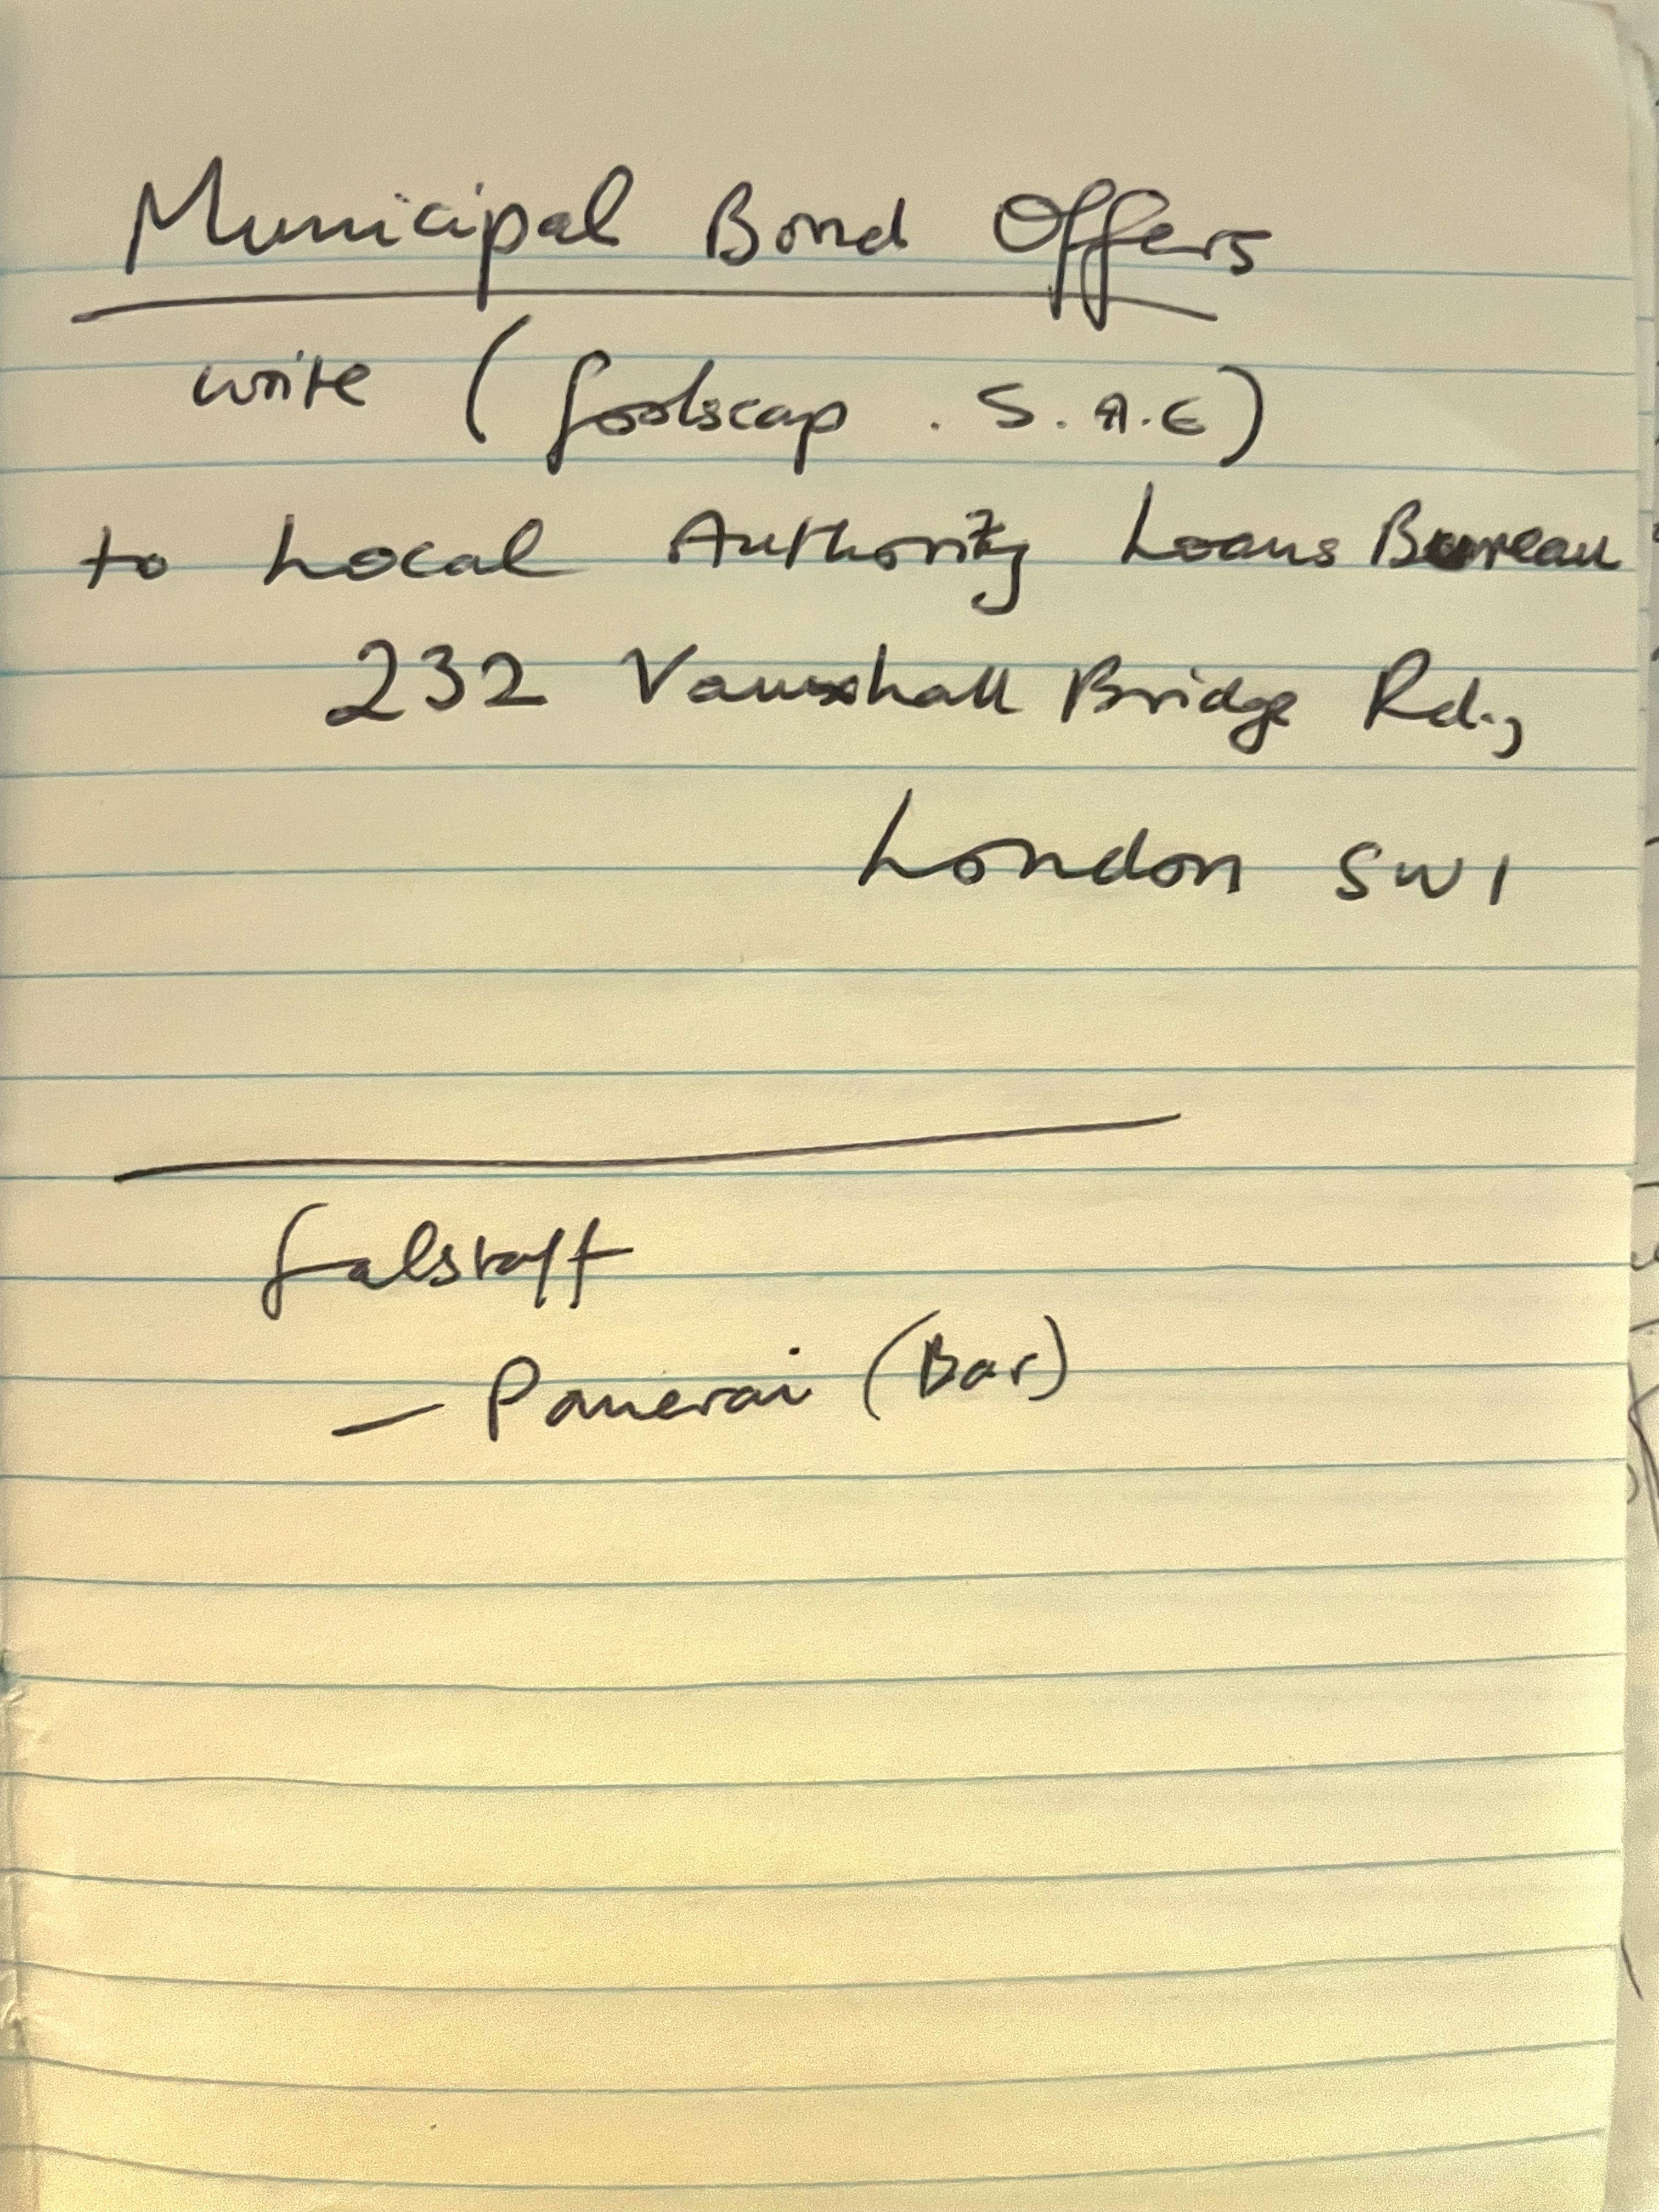 Municipal Bond Offers
write (foolscap . S.A.E)
to Local Authority Loans Bureau
232 Vauxhall Bridge Rd.,
London SW1
Falstaff
– Panerai (Bar)